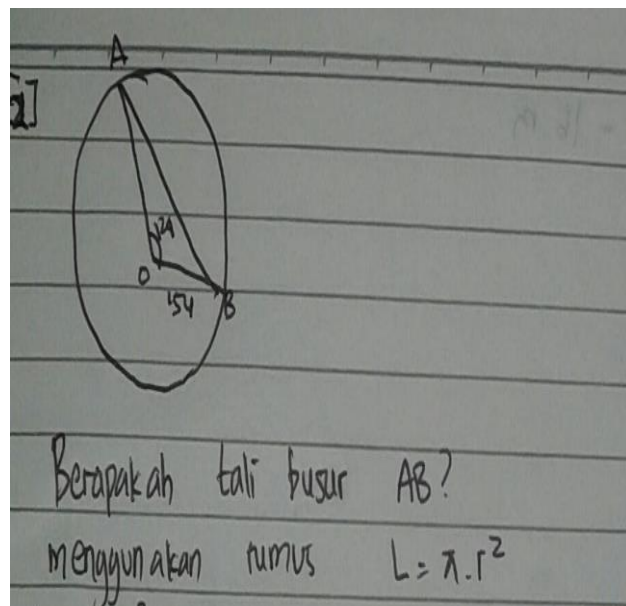 A
2]
24
O
154
B
Berapakah tali busur AB?
menggunakan rumus L = π.r²